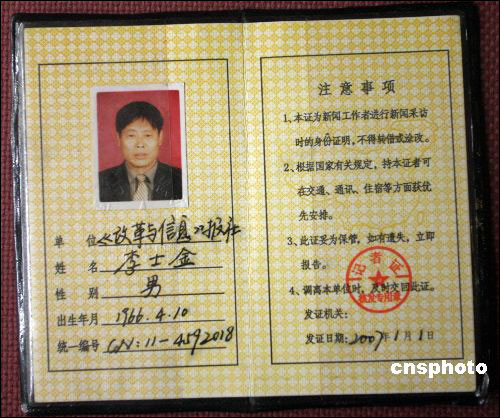 单 位 《改革与信息》报社
姓 名 李士金
性 别 男
出生年月 1966.4.10
统一编号 CN:11-4592018
注意事项
1、本证为新闻工作者进行新闻采访
时的身份证明，不得转借或涂改。
2、根据国家有关规定，持本证者可
在交通、通讯、住宿等方面获优
先安排。
3、此证妥为保管，如有遗失，立即
报告。
4、调离本单位时，及时交回此证。
发证机关：
发证日期：2007年1月1日
记者证
核发专用章
cnsphoto